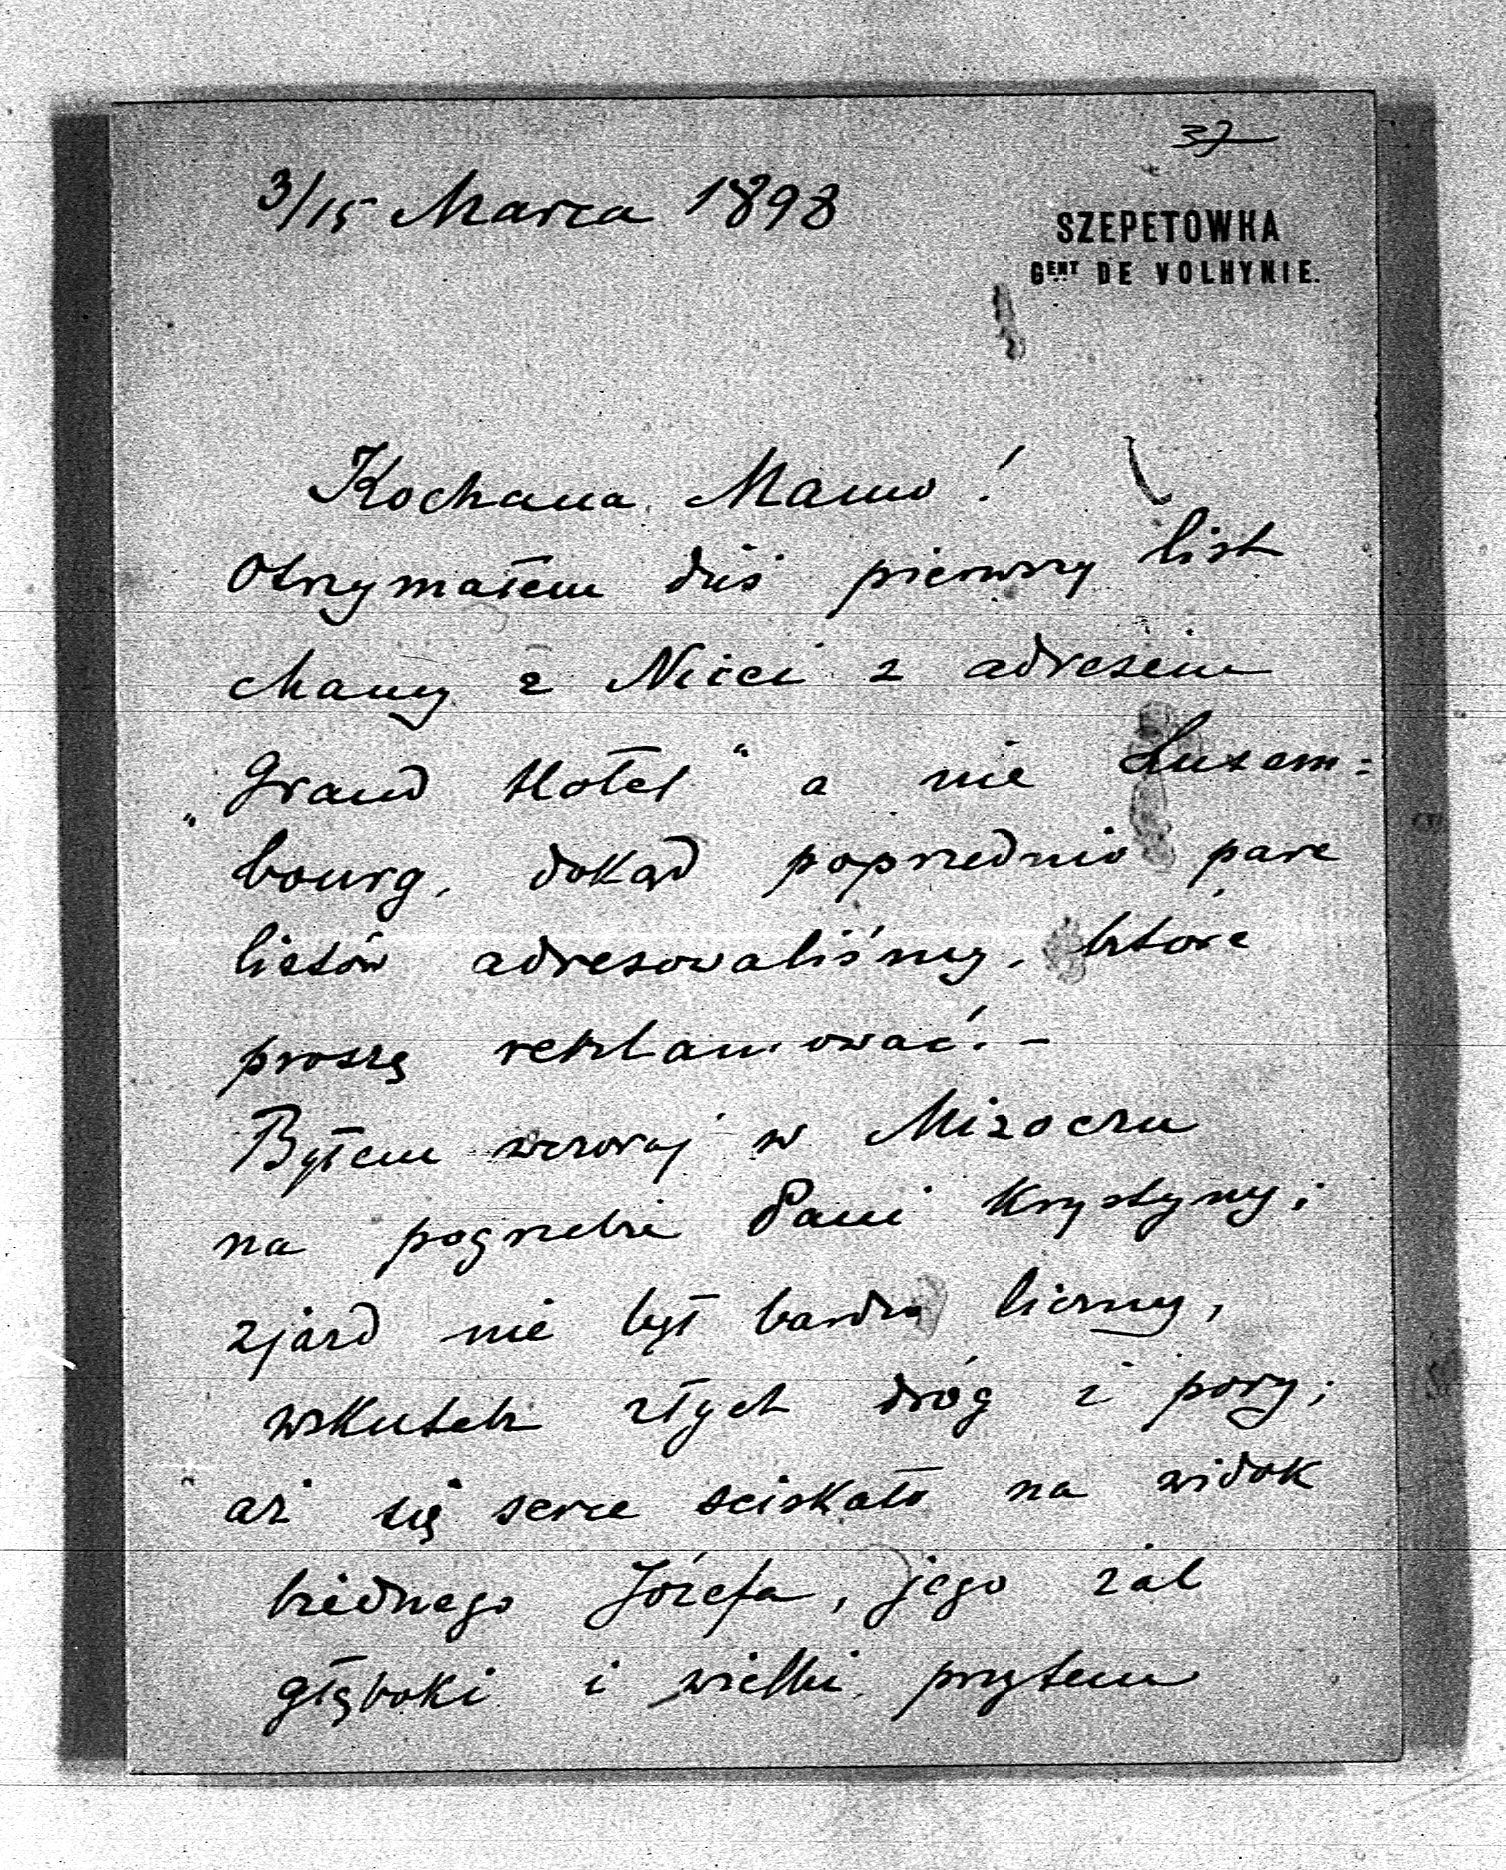 37
3/15 Marca 1898
SZEPETÓWKA
GENT DE VOLHYNIE.
Kochana Mamo!
Otrzymałem dziś pierwszy list
Mamy z Nicei z adresem
„Grand Hotel" a nie Luxem=
bourg, dokąd poprzednio parę
listów adresowaliśmy, które
proszę reklamować. -
Byłem wczoraj w Mizoczu
na pogrzebie Pani Krystyny;
zjazd nie był bardzo liczny,
wskutek złych dróg i pory;
aż się serce sciskało na widok
biednego Józefa, jego żal
głęboki i wielki przytem